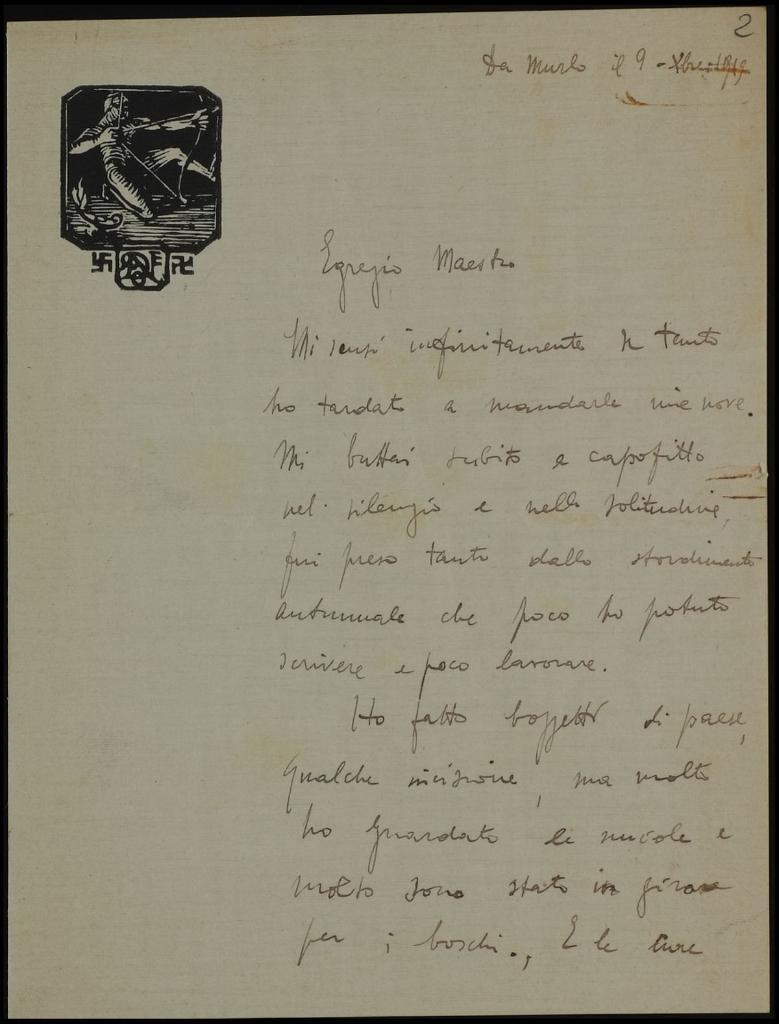 2
Da Murlo il 9 - Xbre 1919
Egregio Maestro
Mi scusi infinitamente se tanto
ho tardato a mandarle mie nove.
Mi buttai subito a capofitto
nel silenzio e nella solitudine,
fui preso tanto dallo stordimento
autunnale che poco ho potuto
scrivere e poco lavorare.
Ho fatto bozzetti di paese,
qualche incisione, ma molto
ho guardato le nuvole e
molto sono stato in giro
per i boschi., E le cure